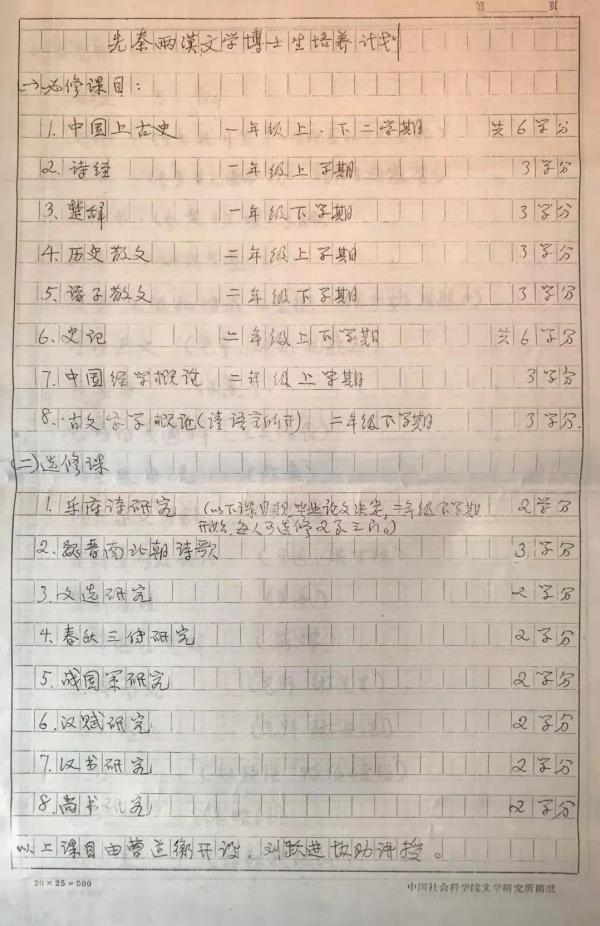 第 页
先秦两汉文学博士生培养计划
(一)必修课目:
1. 中国上古史 一年级上、下二学期 共6学分
2. 诗经 一年级上学期 3学分
3. 楚辞 一年级下学期 3学分
4. 历史散文 二年级上学期 3学分
5. 诸子散文 二年级下学期 3学分
6. 史记 二年级上下学期 共6学分
7. 中国经学概论 二年级上学期 3学分
8. 古文字学概论(请语言所开) 二年级下学期 3学分.
(二)选修课
1. 乐府诗研究 (以下课目视毕业论文决定,二年级下学期 2学分
开始,每人可选修2至三门。)
2. 魏晋南北朝诗歌 3学分
3. 文选研究 2学分
4. 春秋三传研究 2学分
5. 战国策研究 2学分
6. 汉赋研究 2学分
7. 汉书研究 2学分
8. 尚书研究 2学分
以上课目由曹道衡开设,刘跃进协助讲授。
20×25=500 中国社会科学院文学研究所稿纸